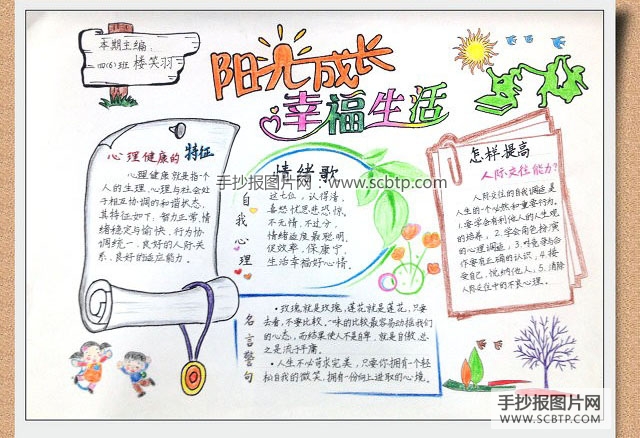 本期主编:
四(6)班 楼笑羽
阳光成长
幸福生活
心理健康的特征
心理健康就是指个
人的生理、心理与社会处
于相互协调的和谐状态,
其特征如下:智力正常,情
绪稳定与愉快,行为协
调统一,良好的人际关
系,良好的适应能力。
情绪歌
手抄报图片网:www.scbtp.com
自我心理
这七位,认得清,
喜怒忧思悲恐惊。
不无情,不过分,
情绪适度最聪明。
促效率,保康宁,
生活幸福好心情。
怎样提高
人际交往能力?
人际交往的自我调适是
人生的个必然和重要行为。
1.要学会有利他人的人生观
的培养,2.学会角色扮演
的心理调适,3.对竞争与合
作要有正确的认识,4.接
受自己,悦纳他人,5.清除
人际交往中的不良心理。
名言警句
·玫瑰就是玫瑰,莲花就是莲花,只要
去看,不要比较。一味的比较最容易动摇我们
的心态,而结果使人不是自卑,就是自傲,总
之是流于平庸。
·人生不必苛求完美,只要你拥有一个轻
松自我的微笑,拥有一份向上进取的心境。
手抄报图片网
SCBTP.COM